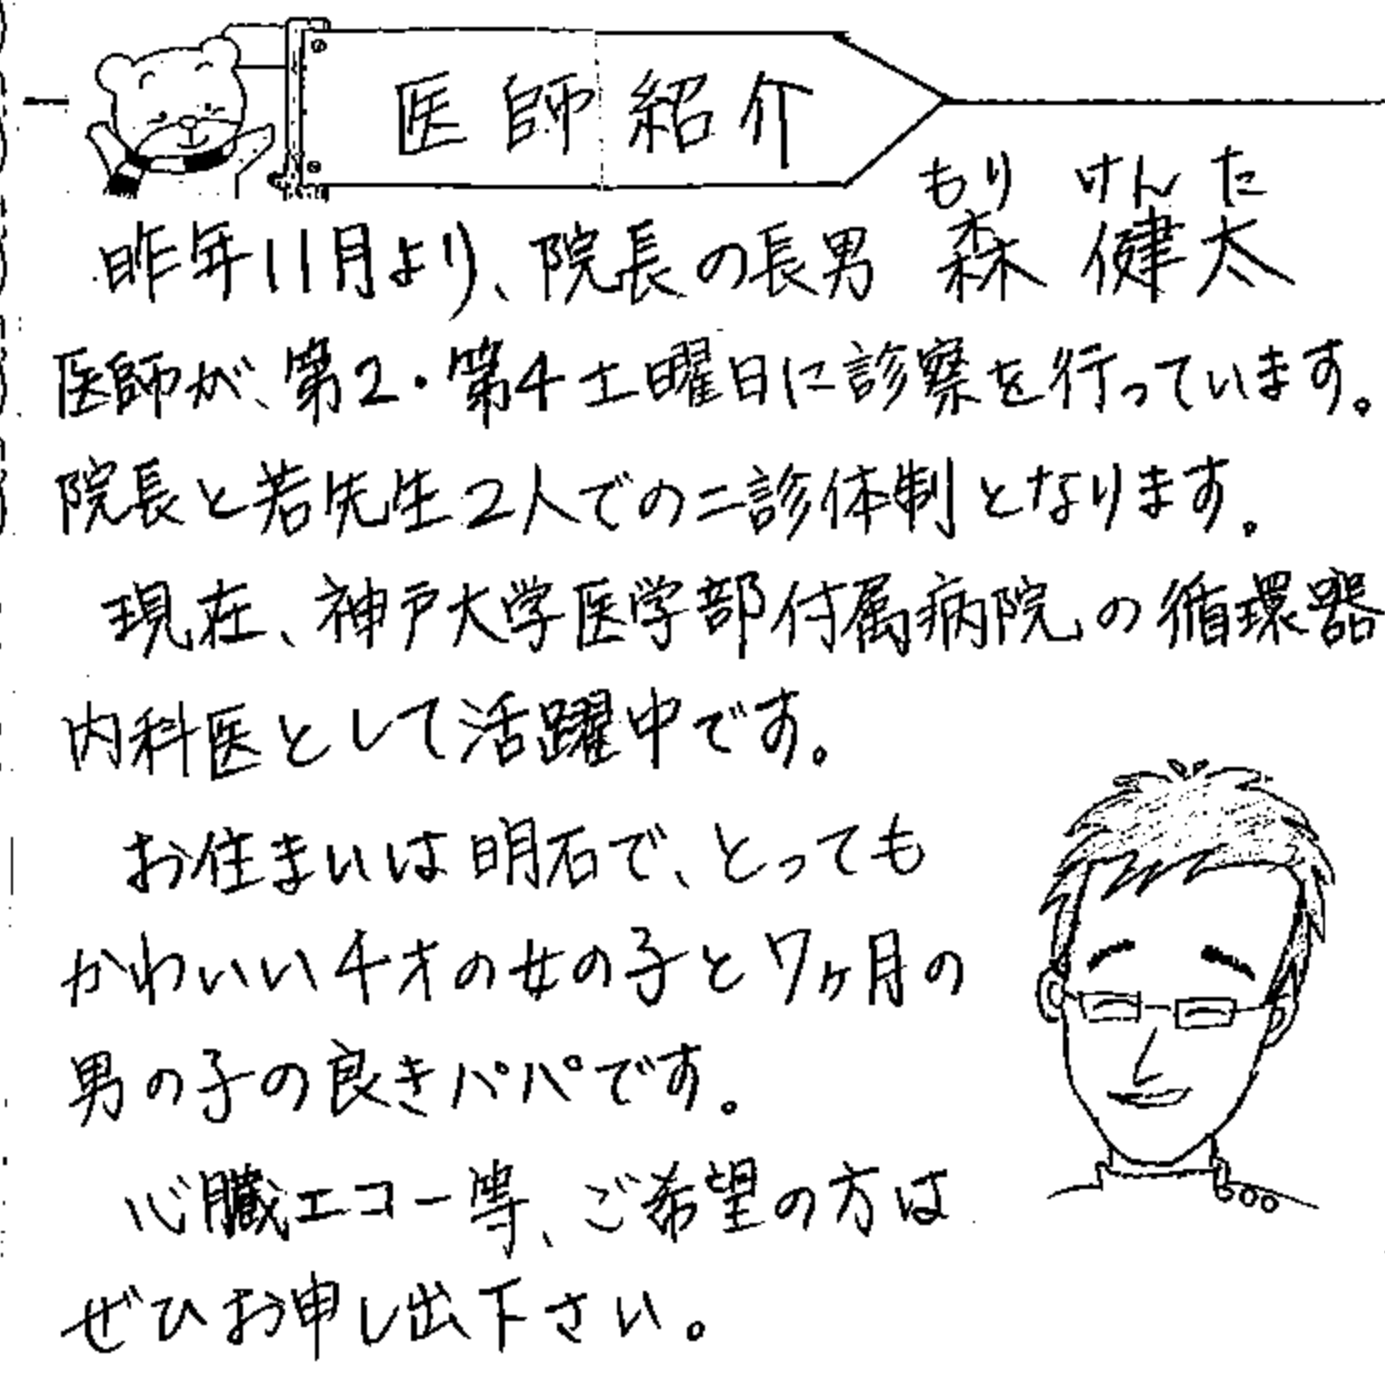 医師紹介
もり けんた
昨年11月より、院長の長男 森 健太
医師が、第2・第4土曜日に診察を行っています。
院長と若先生2人での二診体制となります。
現在、神戸大学医学部付属病院の循環器
内科医として活躍中です。
お住まいは明石で、とっても
かわいい4才の女の子と7ヶ月の
男の子の良きパパです。
心臓エコー等、ご希望の方は
ぜひお申し出下さい。